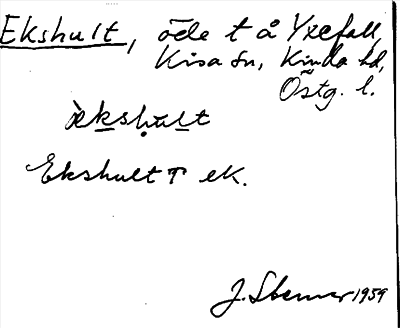 Ekshult, öde t å Yxefall,
Kisa sn, Kinda hd,
Östg. l.
ækshu̇lt
Ekshult T ek.
J. Stenwer 1959